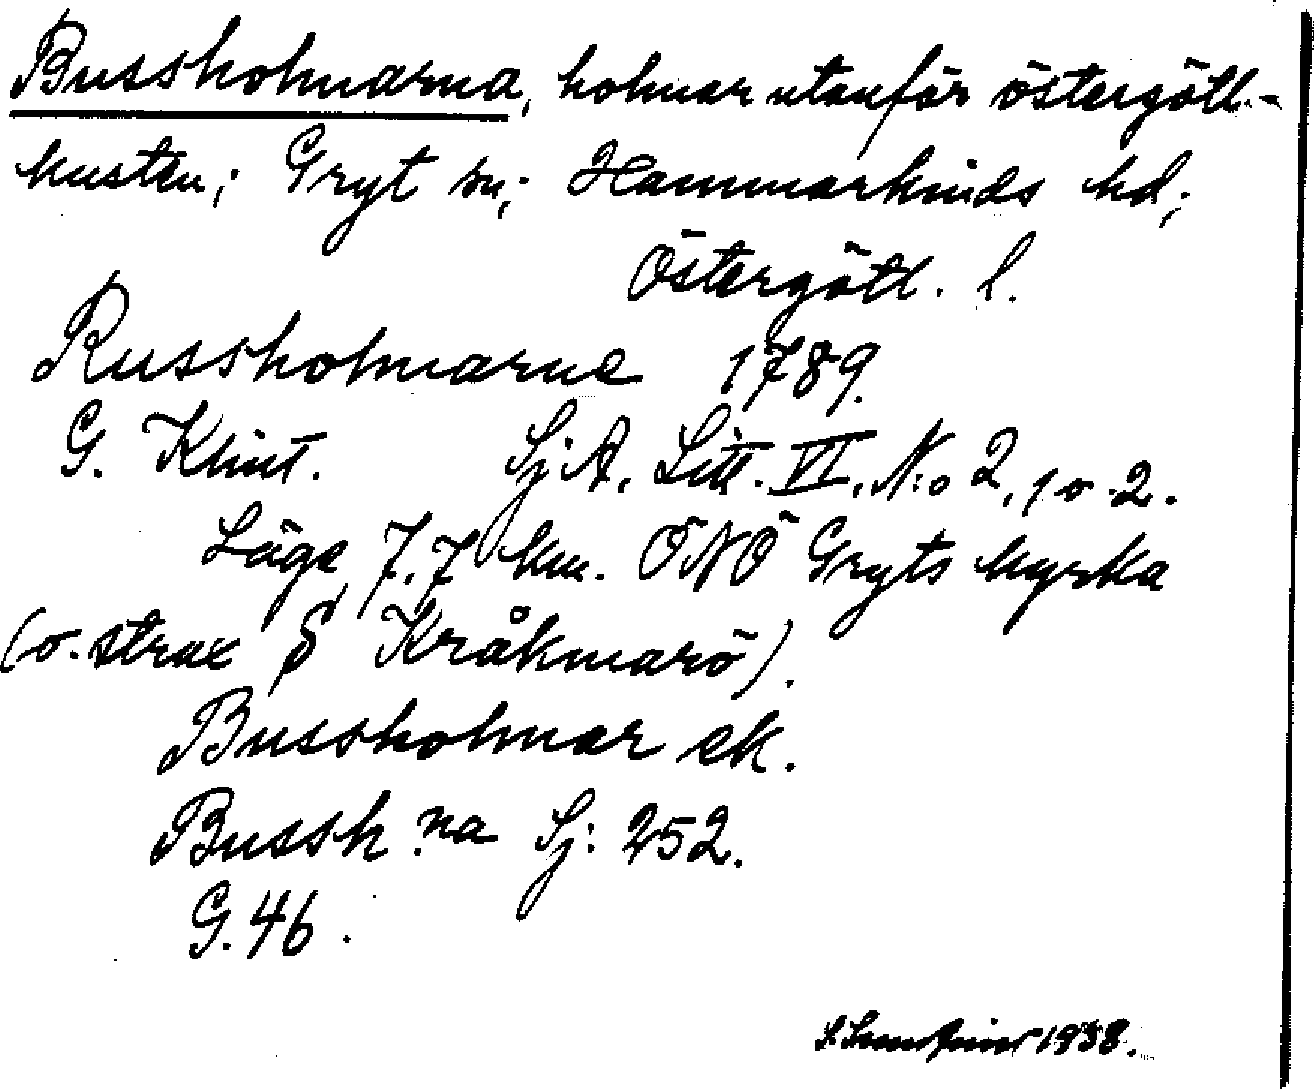 Bussholmarna, holmar utanför östergötl.-
kusten; Gryt sn; Hammarkinds hd;
Östergötl. l.
Russholmarne 1789.
G. Klint. SjA. Litt. VI. N:o 2, 1 o. 2.
Läge 7,7 km. ONÖ Gryts kyrka
(o. strax S Kråkmarö).
Bussholmar ek.
Bussh.na Sj: 252.
G. 46.
1938.